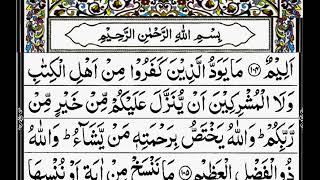 بِسْمِ اللهِ الرَّحْمٰنِ الرَّحِيْمِ
اَلِيْمٌ ﴿۱۰۴﴾ مَا يَوَدُّ الَّذِيْنَ كَفَرُوْا مِنْ اَهْلِ الْكِتٰبِ
وَلَا الْمُشْرِكِيْنَ اَنْ يُّنَزَّلَ عَلَيْكُمْ مِّنْ خَيْرٍ مِّنْ
رَّبِّكُمْ ؕ وَاللهُ يَخْتَصُّ بِرَحْمَتِهٖ مَنْ يَّشَآءُ ؕ وَاللهُ
ذُو الْفَضْلِ الْعَظِيْمِ ﴿۱۰۵﴾ مَا نَنْسَخْ مِنْ اٰيَةٍ اَوْ نُنْسِهَا